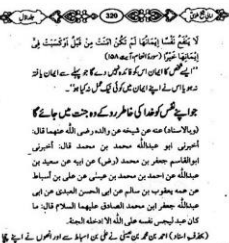 320
لَا يَنْفَعُ نَفْسًا إِيْمَانُهَا لَمْ تَكُنْ اٰمَنَتْ مِنْ قَبْلُ اَوْ كَسَبَتْ فِيْ
اِيْمَانِهَا خَيْرًا
"ایسے شخص کا ایمان اس کو فائدہ نہیں دے گا جو پہلے سے ایمان یافتہ
نہ ہو یا اس نے اپنے ایمان میں کوئی نیک عمل نہ کیا ہو"۔
جو اپنے نفس کو خدا کی خاطر روکے وہ جنت میں جائے گا
(وبالاسناد) عنه عن شيخه عن والده رضى الله عنهما قال:
أخبرنى أبو عبدالله محمد بن محمد قال: أخبرنى
أبو القاسم جعفر بن محمد (رض) عن أبيه عن سعيد بن
عبدالله عن احمد بن محمد بن عيسى عن على بن أسباط
عن عمه يعقوب بن سالم عن ابى الحسن العبدى عن ابى
عبدالله جعفر ابن محمد الصادق عليهما السلام قال: ما
كان عبد ليحبس نفسه على الله الا ادخله الجنة.
(بحذف اسناد) احمد بن محمد بن عیسیٰ نے علی بن اسباط سے اور انھوں نے اپنے چچا